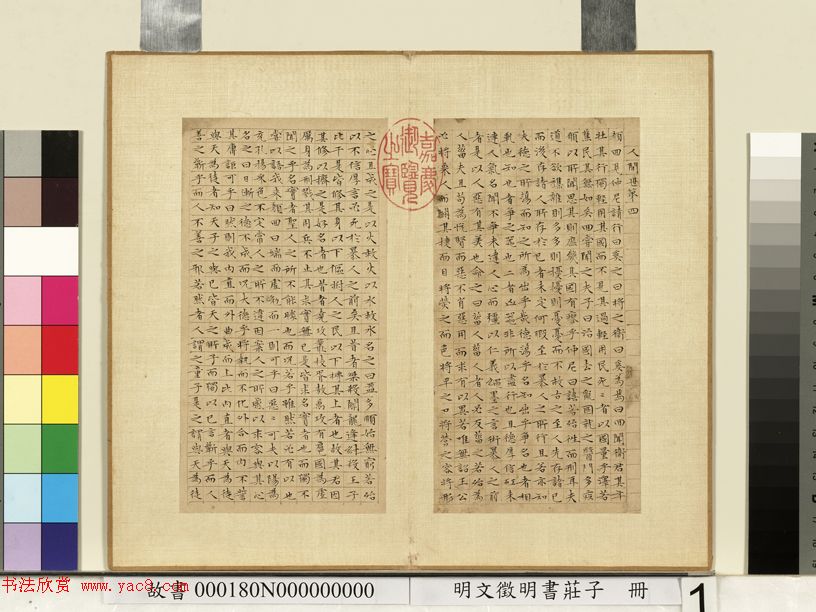 人間世第四
顏回見仲尼請行曰奚之曰將之衛曰奚為焉曰回聞衛君其年
壯其行獨輕用其國而不見其過輕用民死死者以國量乎澤若
蕉民其無如矣回嘗聞之夫子曰治國去之亂國就之醫門多疾
願以所聞思其則庶幾其國有瘳乎仲尼曰譆若殆往而刑耳夫
道不欲雜雜則多多則擾擾則憂憂而不救古之至人先存諸己
而後存諸人所存於己者未定何暇至於暴人之所行且若亦知
夫德之所蕩而知之所為出乎哉德蕩乎名知出乎爭名也者相
軋也知也者爭之器也二者凶器非所以盡行也且德厚信矼未
達人氣名聞不爭未達人心而彊以仁義繩墨之言術暴人之前
者是以人惡有其美也命之曰菑人菑人者人必反菑之若殆為
人菑夫且苟為悅賢而惡不肖惡用而求有以異若唯無詔王公
必將乘人而鬬其捷而目將熒之而色將平之口將營之容將形
嘉慶御覽之寶
之心且成之是以火救火以水救水名之曰益多順始無窮若殆
以不信厚言必死於暴人之前矣且昔者桀殺關龍逢紂殺王子
比干是皆修其身以下傴拊人之民以下拂其上者也故其君因
其修以擠之是好名者也昔者堯攻叢枝胥敖禹攻有扈國為虛
厲身為刑戮其用兵不止其求實無已是皆求名實者也而獨不
聞之乎名實者聖人之所不能勝也而況若乎雖然若必有以也
嘗以語我來顏回曰端而虛勉而一則可乎曰惡惡可夫以陽為
充孔揚采色不定常人之所不違因案人之所感以求容與其心
名之曰日漸之德不成而況大德乎將執而不化外合而內不訾
其庸詎可乎曰然則我內直而外曲成而上比內直者與天為徒
與天為徒者知天子之與己皆天之所子而獨以己言蘄乎而人
善之蘄乎而人不善之邪若然者人謂之童子是之謂與天為徒
书法欣赏 www.yac8.com
故書 000180N000000000
明文徵明書莊子 冊
1